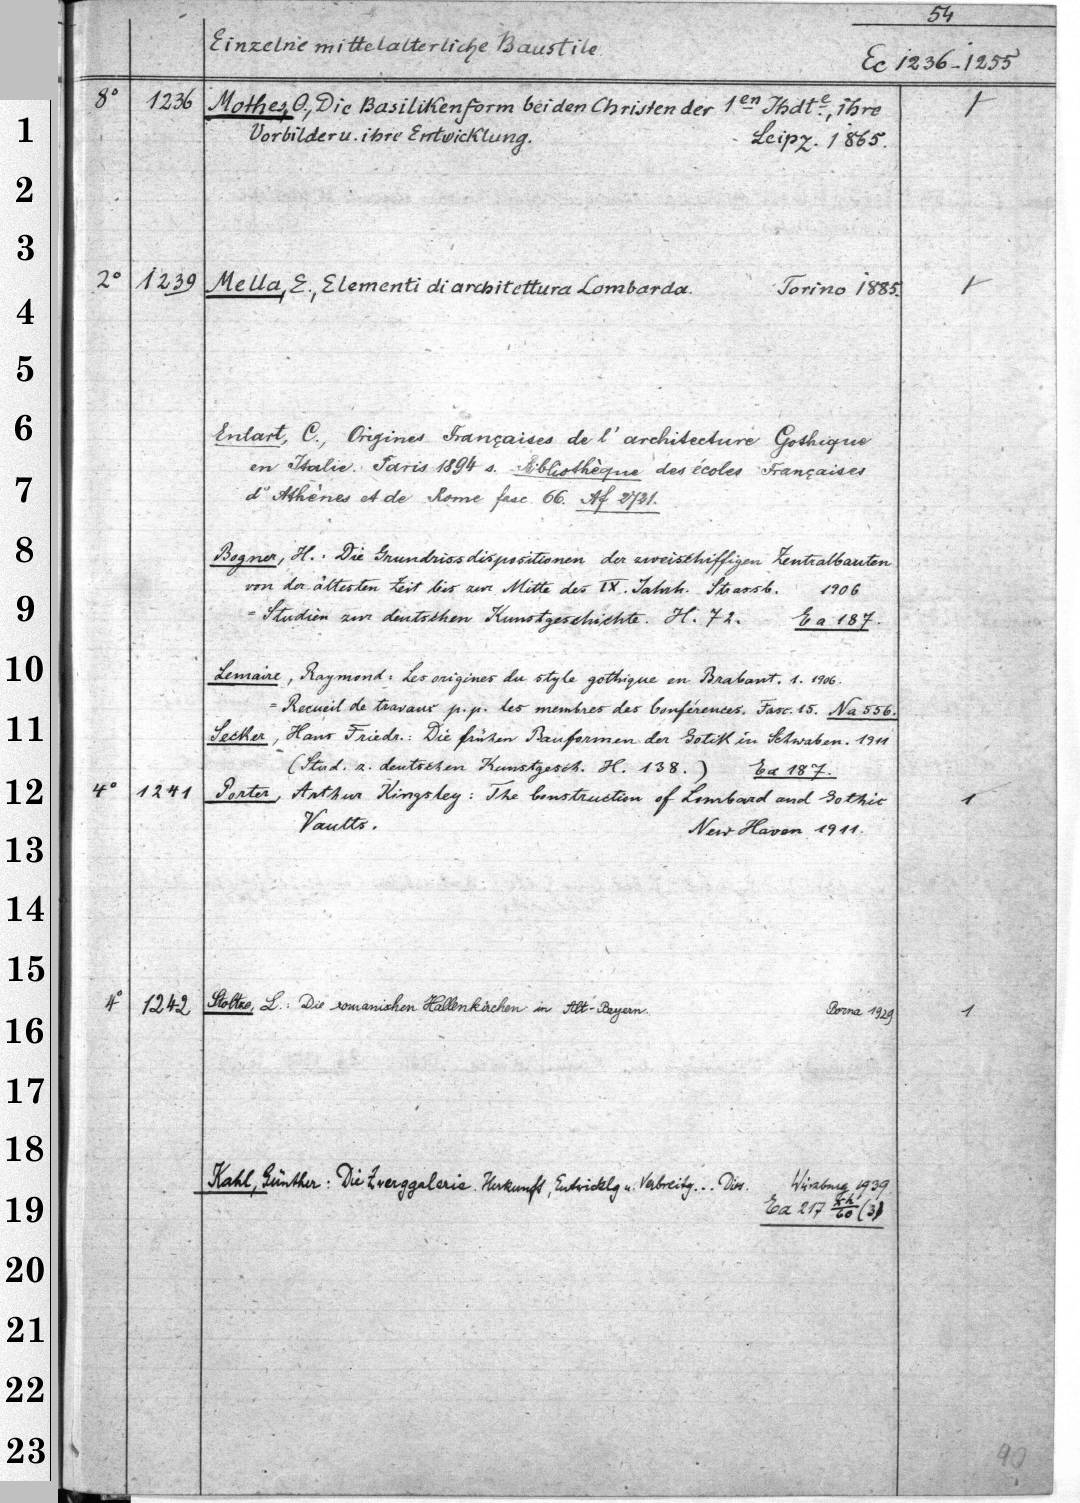 54
Einzelne mittelalterliche Baustile.
Ec 1236-1255
8° 1236 Mothes, O., Die Basilikenform bei den Christen der 1en Jhdte., ihre 1
1
Vorbilder u. ihre Entwicklung. Leipz. 1865.
2
3
2° 1239 Mella, E., Elementi di architettura Lombarda. Torino 1885. 1
4
5
6
Enlart, C., Origines Françaises de l'architecture Gothique
en Italie. Paris 1894 s. Bibliothèque des écoles Françaises
7
d'Athènes et de Rome fasc. 66. Af 2721.
8
Bogner, H.: Die Grundrissdispositionen der zweischiffigen Zentralbauten
von der ältesten Zeit bis zur Mitte des IX. Jahrh. Strassb. 1906
9
= Studien zur deutschen Kunstgeschichte. H. 72. Ea 187.
10
Lemaire, Raymond: Les origines du style gothique en Brabant. 1. 1906.
= Recueil de travaux p.p. les membres des Conférences. Fasc. 15. Na 556.
11
Secker, Hans Friedr.: Die frühen Bauformen der Gotik in Schwaben. 1911
(Stud. z. deutschen Kunstgesch. H. 138.) Ea 187.
12
4° 1241 Porter, Arthur Kingsley: The Construction of Lombard and Gothic 1
Vaults. New Haven 1911.
13
14
15
4° 1242 Stoltze, L.: Die romanischen Hallenkirchen in Alt-Bayern. Borna 1929 1
16
17
18
Kahl, Günther: Die Zwerggalerie. Herkunft, Entwicklg u. Verbreitg... Diss. Würzburg 1939
19
Ea 217 60 (3)
20
21
22
23
90